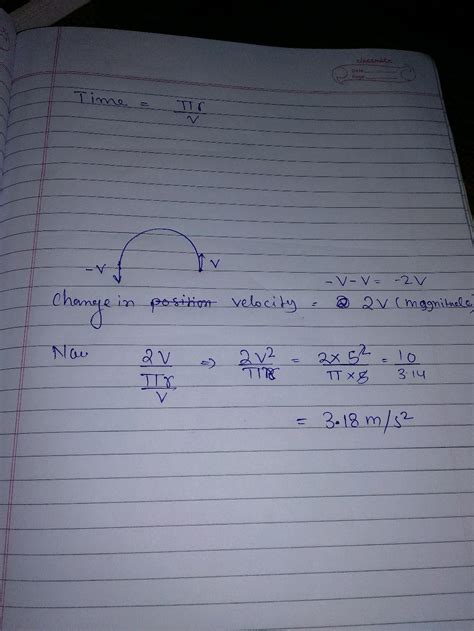 classmate
Date
Page
Time = πr/v
-v v
-v-v = -2v
Change in position velocity = 2v (magnitude)
Now 2v/(πr/v) ⇒ 2v²/πr = 2×5²/π×5 = 10/3.14
= 3.18 m/s²